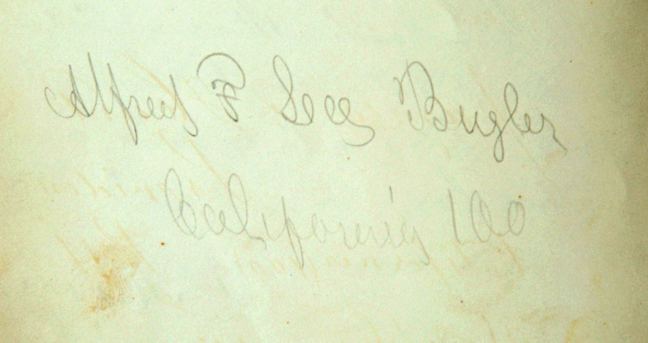 Alfred F Lee Bugler
California 100